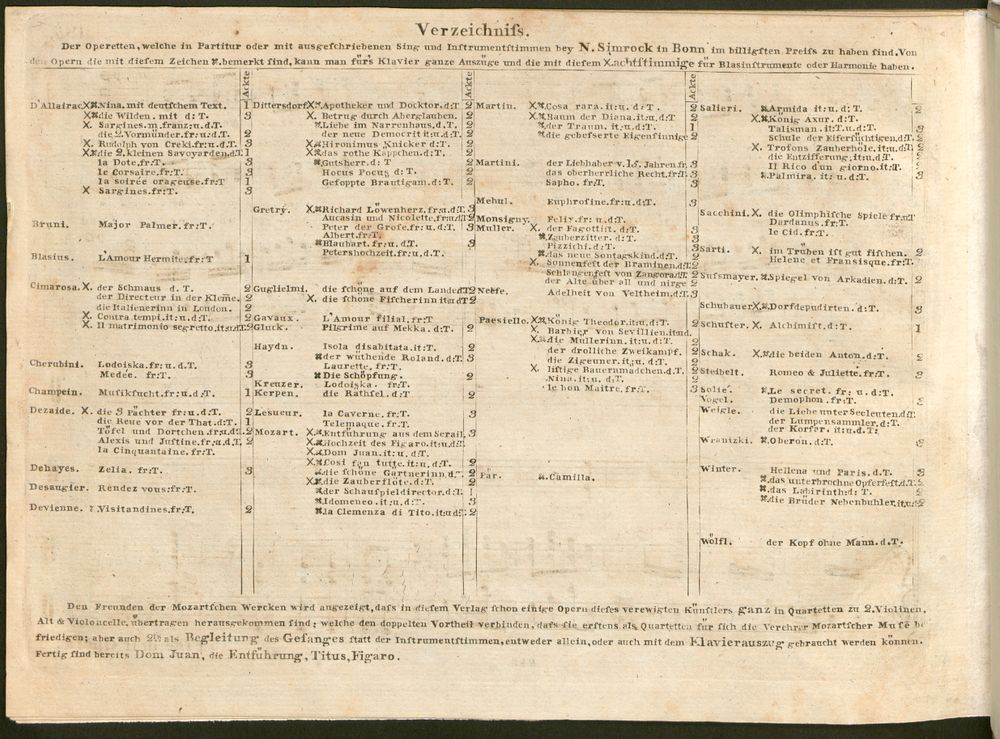 Verzeichnifs.
Der Operetten, welche in Partitur oder mit ausgefchriebenen Sing und Inftrumentftimmen bey N. Simrock in Bonn im billigften Preifs zu haben find. Von
den Opern die mit diefem Zeichen ⌘. bemerkt find, kann man fürs Klavier ganze Auszüge und die mit diefem X. achtftimmige für Blasinftrumente oder Harmonie haben.
Ackte
D'Allairac. X⌘Nina. mit deutfchem Text. 1
X⌘die Wilden. mit d: T. 3
X. Sargines. m. franz: u. d. T.
die 2. Vormünder. fr: u. d. T. 2
X. Rudolph von Creki. fr: u. d. T. 3
X⌘die 2. kleinen Savoyarden. d. T. 1
la Dote. fr: T. 3
le Corsaire. fr: T. 3
la soirée orageuse. fr: T 1
X Sargines. fr: T. 3
Bruni. Major Palmer. fr: T. 3
Blasius. L'Amour Hermite. fr: T 1
Cimarosa. X. der Schmaus d. T. 2
der Directeur in der Kleme. 2
die Italienerin in London. 2
X. Contra tempi. it: u. d. T. 2
X. Il matrimonio segretto. it: u. d. T. 2
Cherubini. Lodoiska. fr: u. d. T. 3
Medée. fr: T. 3
Champein. Mufikfucht. fr: u. d. T. 1
Dezaide. X. die 3 Pächter fr: u. d. T. 2
die Reue vor der That. d: T. 1
Töfel und Dortchen. fr: u. d. T. 2
Alexis und Juftine. fr: u. d. T. 2
la Cinquantaine. fr: T.
Dehayes. Zelia. fr: T. 3
Desaugier. Rendez vous. fr: T.
Devienne. Visitandines. fr. T. 2
Ackte
Dittersdorf. X⌘Apotheker und Docktor. d: T 2
X. Betrug durch Aberglauben. 2
⌘Liebe im Narrenhaus. d. T. 2
der neue Democrit it: u. d: T. 2
X⌘Hironimus Knicker d: T. 2
X⌘das rothe Käppchen. d: T. 2
⌘Gutsherr. d: T 2
Hocus Pocus d: T. 2
Gefoppte Brautigam. d: T. 2
Gretry. X⌘Richard Löwenherz. fr: u. d. T. 3
Aucasin und Nicolette. fr: u. d. T. 3
Peter der Grofe. fr: u. d. T. 3
Albert. fr: T.
⌘Blaubart. fr: u. d. T. 3
Petershochzeit. fr: u. d. T.
Guglielmi. die fchöne auf dem Lande. d. T. 2
X. die fchöne Fifcherinn it: u. d. T. 2
Gavaux. L'Amour filial. fr: T
Gluck. Pilgrime auf Mekka. d: T. 2
Haydn. Isola disabitata. it: T. 2
⌘der wüthende Roland. d: T. 3
Laurette. fr: T.
⌘Die Schöpfung. 2
Kreuzer. Lodoiska. fr: T.
Kerpen. die Räthfel. d: T 2
Lesueur. la Caverne. fr: T. 3
Telemaque. fr: T.
Mozart. X⌘Entführung aus dem Serail. 3
X⌘Hochzeit des Figaro. it: u. d. T.
X⌘Dom Juan. it: u. d. T. 2
X⌘Cosi fan tutte. it: u. d: T. 2
⌘die fchöne Gärtnerinn. d: T. 2
X⌘die Zauberflöte. d: T. 2
⌘der Schaufpieldirector. d: T. 1
⌘Idomeneo. it: u. d: T. 3
⌘la Clemenza di Tito. it: u. d: T. 2
Ackte
Martin. X⌘Cosa rara. it: u. d: T. 2
X⌘Baum der Diana. it: u. d: T 2
⌘der Traum. it: u. d: T. 1
⌘die gebefserte Eigenfinnige 2
Martini. der Liebhaber v. 15. Jahren. fr. 3
das oberherrliche Recht. fr: T. 3
Sapho. fr: T.
Mehul. Euphrofine. fr: u. d. T. 3
Monsigny. Felix. fr: u. d: T.
Muller. X. der Fagottift. d: T. 3
⌘Zauberzitter. d: T. 3
Pizzichi. d: T. 3
⌘das neue Sontagskind. d: T. 2
X. Sonnenfeft der Braminen. d: T. 2
Schlangenfeft von Zangora. d: T. 2
der Alte über all und nirge 2
Neefe. Adelheit von Veltheim. d: T. 3
Paesiello. X⌘König Theodor. it: u. d: T. 2
X. Barbier von Sevillien. it: u. d.
X⌘die Mullerinn. it: u. d: T. 2
der drolliche Zweikampf. 2
die Zigeuner. it: u. d: T. 2
X. liftige Bauernmädchen. d. T. 2
Nina. it: u. d: T 2
le bon Maitre. fr: T. 3
Fär. ⌘Camilla.
Ackte
Salieri. ⌘Armida it: u. d: T. 3
X⌘König Axur. d: T. 3
Talisman. it: T. u. d: T. 3
Schule der Eiferfüchtigen. d: T. 2
X. Trofons Zauberhöle. it: u. d: T. 2
die Entzifferung. it: u. d: T. 2
Il Rico d'un giorno. it: T. 2
⌘Palmira. it: u. d: T. 3
Sacchini. X. die Olimphifche Spiele fr: u: T
Dardanus. fr: T.
le Cid. fr: T.
Sarti. X. im Trüben ift gut fifchen. 2
Helene et Fransisque. fr: T.
Sufsmayer. ⌘Spiegel von Arkadien. d: T. 2
Schubauer X⌘Dorfdepudirten. d: T. 3
Schufter. X. Alchimift. d: T. 1
Schak. X⌘die beiden Anton. d: T. 2
Steibelt. Romeo & Juliette. fr: T. 3
Solié. ⌘Le secret. fr: u. d: T.
Vogel. Demophon. fr: T. 3
Weigle. die Liebe unter Seeleuten. d: T.
der Lumpensammler. d: T.
der Korfer. it: u. d. T:
Wranizki. ⌘Oberon. d: T. 3
Winter. Hellena und Paris. d. T. 3
⌘das unterbrochne Opferfeft. d. T. 2
⌘das Labirinth. d: T. 2
⌘die Brüder Nebenbuhler. it: u. d. 2
Wölfl. der Kopf ohne Mann. d. T.
Den Freunden der Mozartfchen Wercken wird angezeigt, dafs in diefem Verlag fchon einige Opern diefes verewigten Künftlers ganz in Quartetten zu 2. Violinen,
Alt & Violoncelle, übertragen herausgekommen find; welche den doppelten Vortheil verbinden, dafs fie erftens als Quartetten für fich die Verehrer Mozartfcher Mufe be
friedigen; aber auch 2tens als Begleitung des Gefanges ftatt der Inftrumentftimmen, entweder allein, oder auch mit dem Klavierauszug gebraucht werden können.
Fertig find bereits Dom Juan, die Entführung, Titus, Figaro.